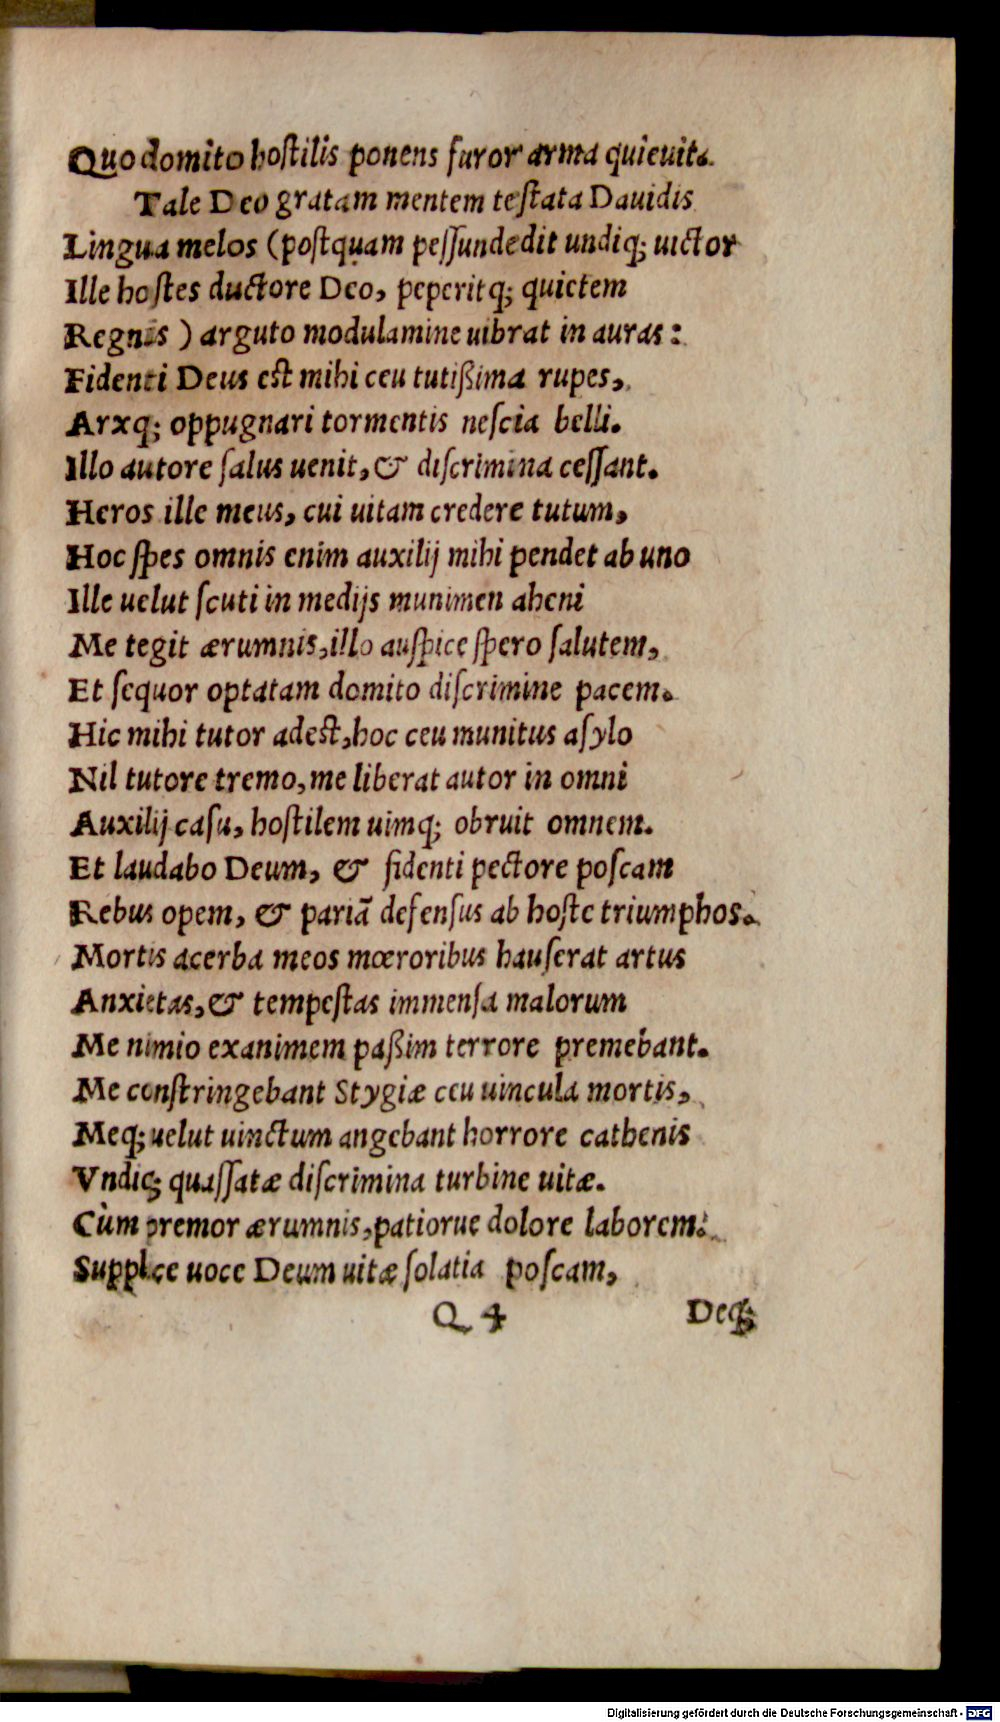 Quo domito hostilis ponens furor arma quieuit.
Tale Deo gratam mentem testata Dauidis
Lingua melos (postquam pessundedit undiq; uictor
Ille hostes ductore Deo, peperitq; quietem
Regnis ) arguto modulamine uibrat in auras:
Fidenti Deus est mihi ceu tutißima rupes,
Arxq; oppugnari tormentis nescia belli.
Illo autore salus uenit, & discrimina cessant.
Heros ille meus, cui uitam credere tutum,
Hoc spes omnis enim auxilij mihi pendet ab uno
Ille uelut scuti in medijs munimen aheni
Me tegit ærumnis, illo auspice spero salutem,
Et sequor optatam domito discrimine pacem.
Hic mihi tutor adest, hoc ceu munitus asylo
Nil tutore tremo, me liberat autor in omni
Auxilij casu, hostilem uimq; obruit omnem.
Et laudabo Deum, & fidenti pectore poscam
Rebus opem, & pariã defensus ab hoste triumphos.
Mortis acerba meos mœroribus hauserat artus
Anxietas, & tempestas immensa malorum
Me nimio exanimem paßim terrore premebant.
Me constringebant Stygiæ ceu uincula mortis,
Meq; uelut uinctum angebant horrore cathenis
Vndiq; quassatæ discrimina turbine uitæ.
Cùm premor ærumnis, patiorue dolore laborem.
Supplice uoce Deum uitæ solatia poscam,
Q 4 Deq;
Digitalisierung gefördert durch die Deutsche Forschungsgemeinschaft - DFG